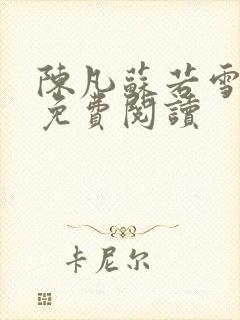 陳凡蘇若雪
免費閱讀
卡尼尔